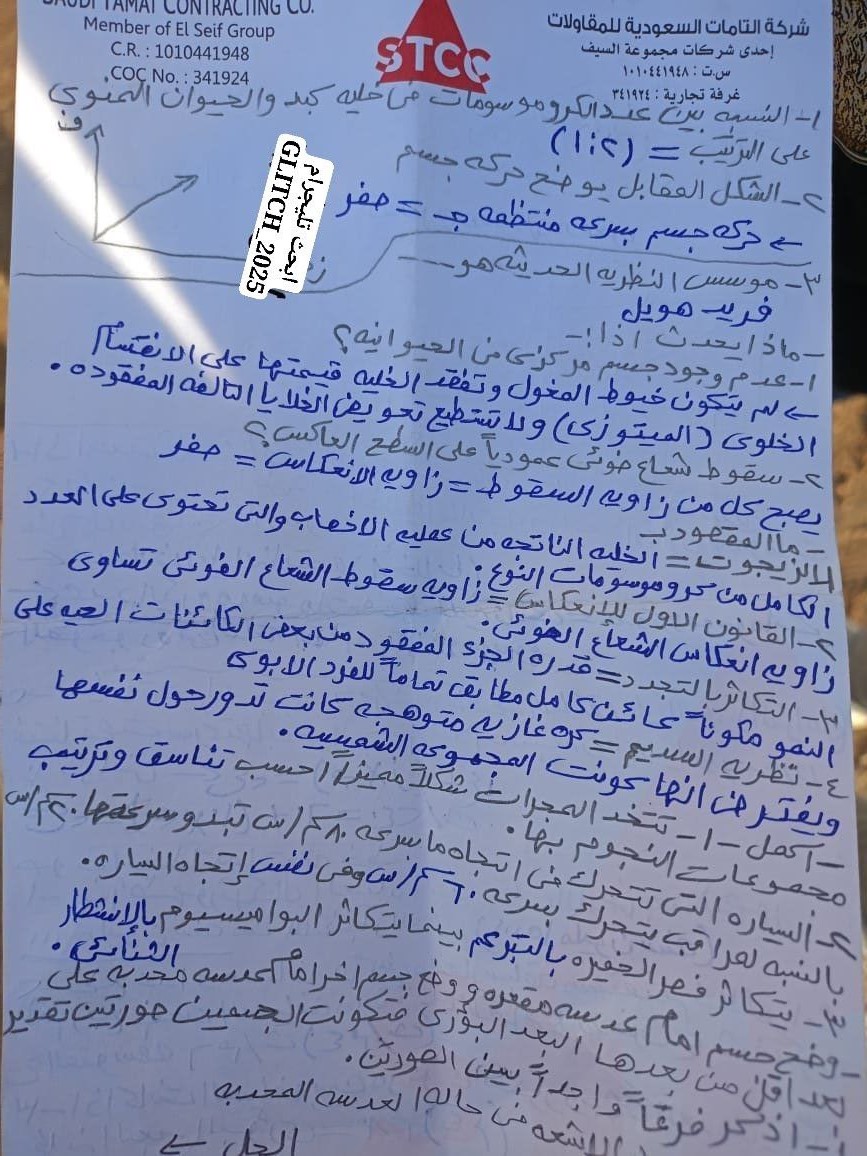 SAUDI TAMAT CONTRACTING CO.
Member of El Seif Group
C.R. : 1010441948
COC No. : 341924
STCC
شركة التامات السعودية للمقاولات
إحدى شركات مجموعة السيف
س.ت : ١٠١٠٤٤١٩٤٨
غرفة تجارية : ٣٤١٩٢٤
١- النسبه بين عدد الكروموسومات فى خليه كبد والحيوان المنوى
على الترتيب = (١:٢)
ف
٢- الشكل المقابل يوضح حركه جسم
← حركه جسم بسرعه منتظمه جـ = صفر
ابحث تليجرام
GLITCH_2025
٣- موسس النظريه الحديثه هو
فريد هويل
- ماذا يحدث اذا :-
١- عدم وجود جسم مركزى من الحيوانيه ؟
← لم يتكون خيوط المغول وتفقد الخليه قيمتها على الانقسام
الخلوى (الميتوزى) ولا تستطيع تعويض الخلايا التالفه المفقوده .
٢- سقوط شعاع ضوئى عمودياً على السطح العاكس ؟
يصبح كل من زاويه السقوط = زاويه الانعكاس = صفر
- ما المقصود بـ
الزيجوت = الخليه الناتجه من عمليه الاخصاب والتى تحتوى على العدد
الكامل من كروموسومات النوع .
٢- القانون الاول للإنعكاس = زاويه سقوط الشعاع الضوئى تساوى
زاويه انعكاس الشعاع الضوئى .
٣- التكاثر بالتجدد = قدره الجزء المفقود من بعض الكائنات الحيه على
النمو مكوناً كائن كامل مطابق تماماً للفرد الابوى
٤- نظريه السديم = كره غازيه متوهجه كانت تدور حول نفسها
ويفترض انها كونت المجموعه الشمسيه .
- اكمل - ١- تتخذ المجرات شكلاً مميزاً حسب تناسق وترتيب
مجموعات النجوم بها .
٢- السياره التى تتحرك فى اتجاه ما سرعه ٨٠ كم/س تبدو سرعتها ٢٠ كم/س
بالنسبه لمراقب يتحرك سرعه ٦٠ كم/س وفى نفس إتجاه السياره .
٣- يتكاثر فطر الخميره بالتبرعم بينما يتكاثر البراميسيوم بالإنشطار
الثنائى .
- وضع جسم امام عدسه مقعره ووضع جسم اخر امام عدسه محدبه على
بعد اقل من بعدها البؤرى فتكونت الجسمين صورتين تقدير
١- اذكر فرقاً واحداً بين الصورتين .
الاشعه فى حاله العدسه المحدبه
الحل ←